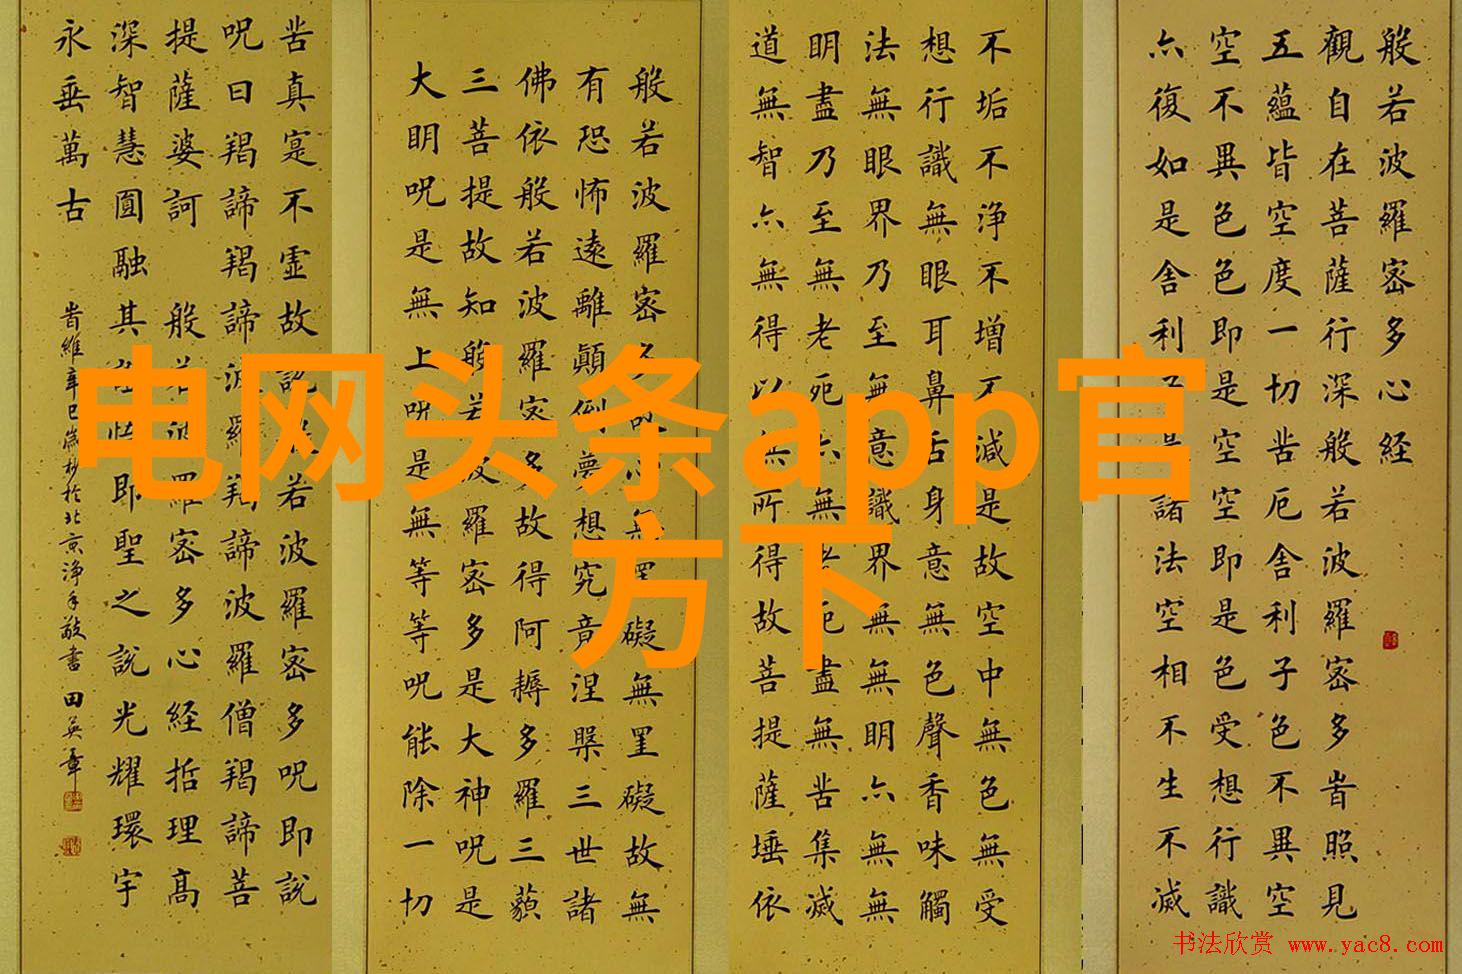 般若波羅密多心经
觀自在菩薩行深般若波羅密多旹照見
五蘊皆空度一切苦厄舍利子色不異空
空不異色色即是空空即是色受想行識
亦復如是舍利子是諸法空相不生不滅
不垢不淨不增不減是故空中無色無受
想行識無眼耳鼻舌身意無色聲香味觸
法無眼界乃至無意識界無無明亦無無
明盡乃至無老死亦無老死盡無苦集滅
道無智亦無得以無所得故菩提薩埵依
般若波羅密多故心無罣礙無罣礙故無
有恐怖遠離顛倒夢想究竟涅槃三世諸
佛依般若波羅密多故得阿耨多羅三藐
三菩提故知般若波羅密多是大神呪是
大明呪是無上呪是無等等呪能除一切
苦真寔不虛故説般若波羅密多呪即説
呪曰羯諦羯諦波羅羯諦波羅僧羯諦菩
提薩婆訶 般若波羅密多心经括理高
深智慧圓融其即聖之説光耀環宇
永垂萬古
旹維辛巳歲杪於北京淨手敬書 田英章
电网头条app官
方下
书法欣赏 www.yac8.com